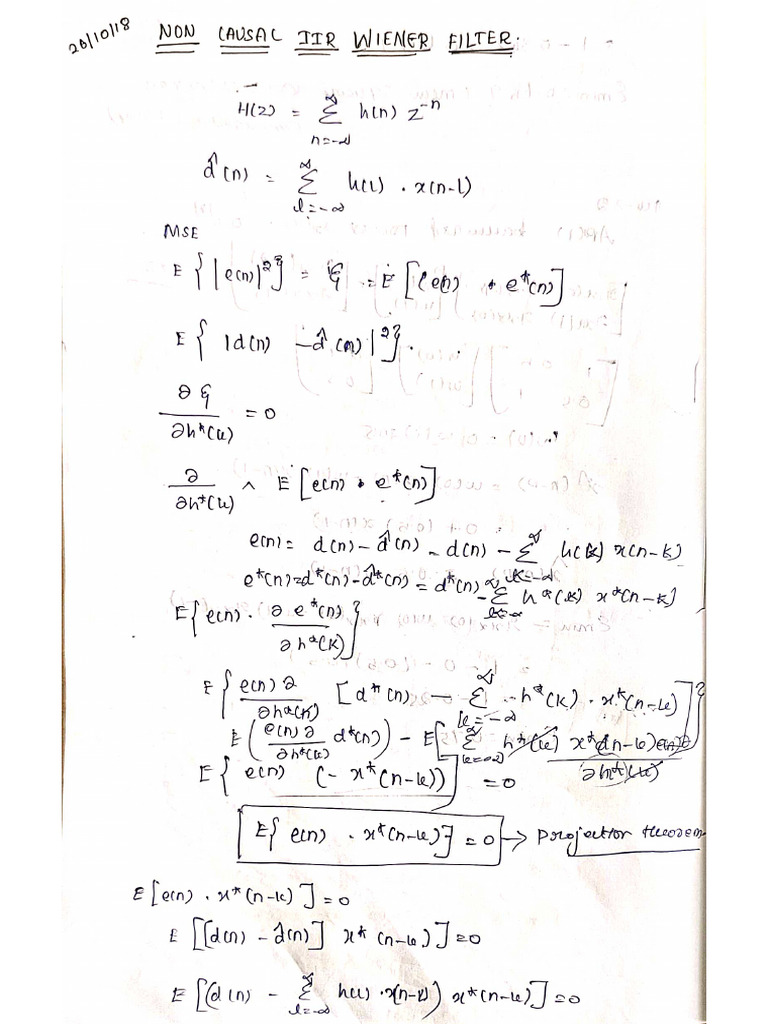 20/10/18 NON CAUSAL IIR WIENER FILTER:
H(z) = ∑_{n=-∞}^{∞} h(n) z^{-n}
d̂(n) = ∑_{l=-∞}^{∞} h(l) . x(n-l)
MSE
E{|e(n)|²} = ξ = E[(e(n) * e*(n)]
E{|d(n) - d̂(n)|²}.
∂ξ / ∂h*(k) = 0
∂/∂h*(k) ^ E[e(n) * e*(n)]
e(n) = d(n) - d̂(n) = d(n) - ∑_{k=-∞}^{∞} h(k) x(n-k)
e*(n) = d*(n) - d̂*(n) = d*(n) - ∑_{k=-∞}^{∞} h*(k) x*(n-k)
E{e(n) . ∂e*(n) / ∂h*(k)}
E{e(n)∂ / ∂h*(k) [d*(n) - ∑_{k=-∞}^{∞} h*(k) . x*(n-k)]}
E(e(n)∂ / ∂h*(k) d*(n)) - E[∑_{k=-∞}^{∞} h*(k) x*(n-k) e(n)∂ / ∂h*(k)]
E{e(n) (-x*(n-k))} = 0
E{e(n) . x*(n-k)} = 0 → projection theorem
E[e(n) . x*(n-k)] = 0
E[[d(n) - d̂(n)] x*(n-k)] = 0
E[(d(n) - ∑_{l=-∞}^{∞} h(l) . x(n-l)) x*(n-k)] = 0